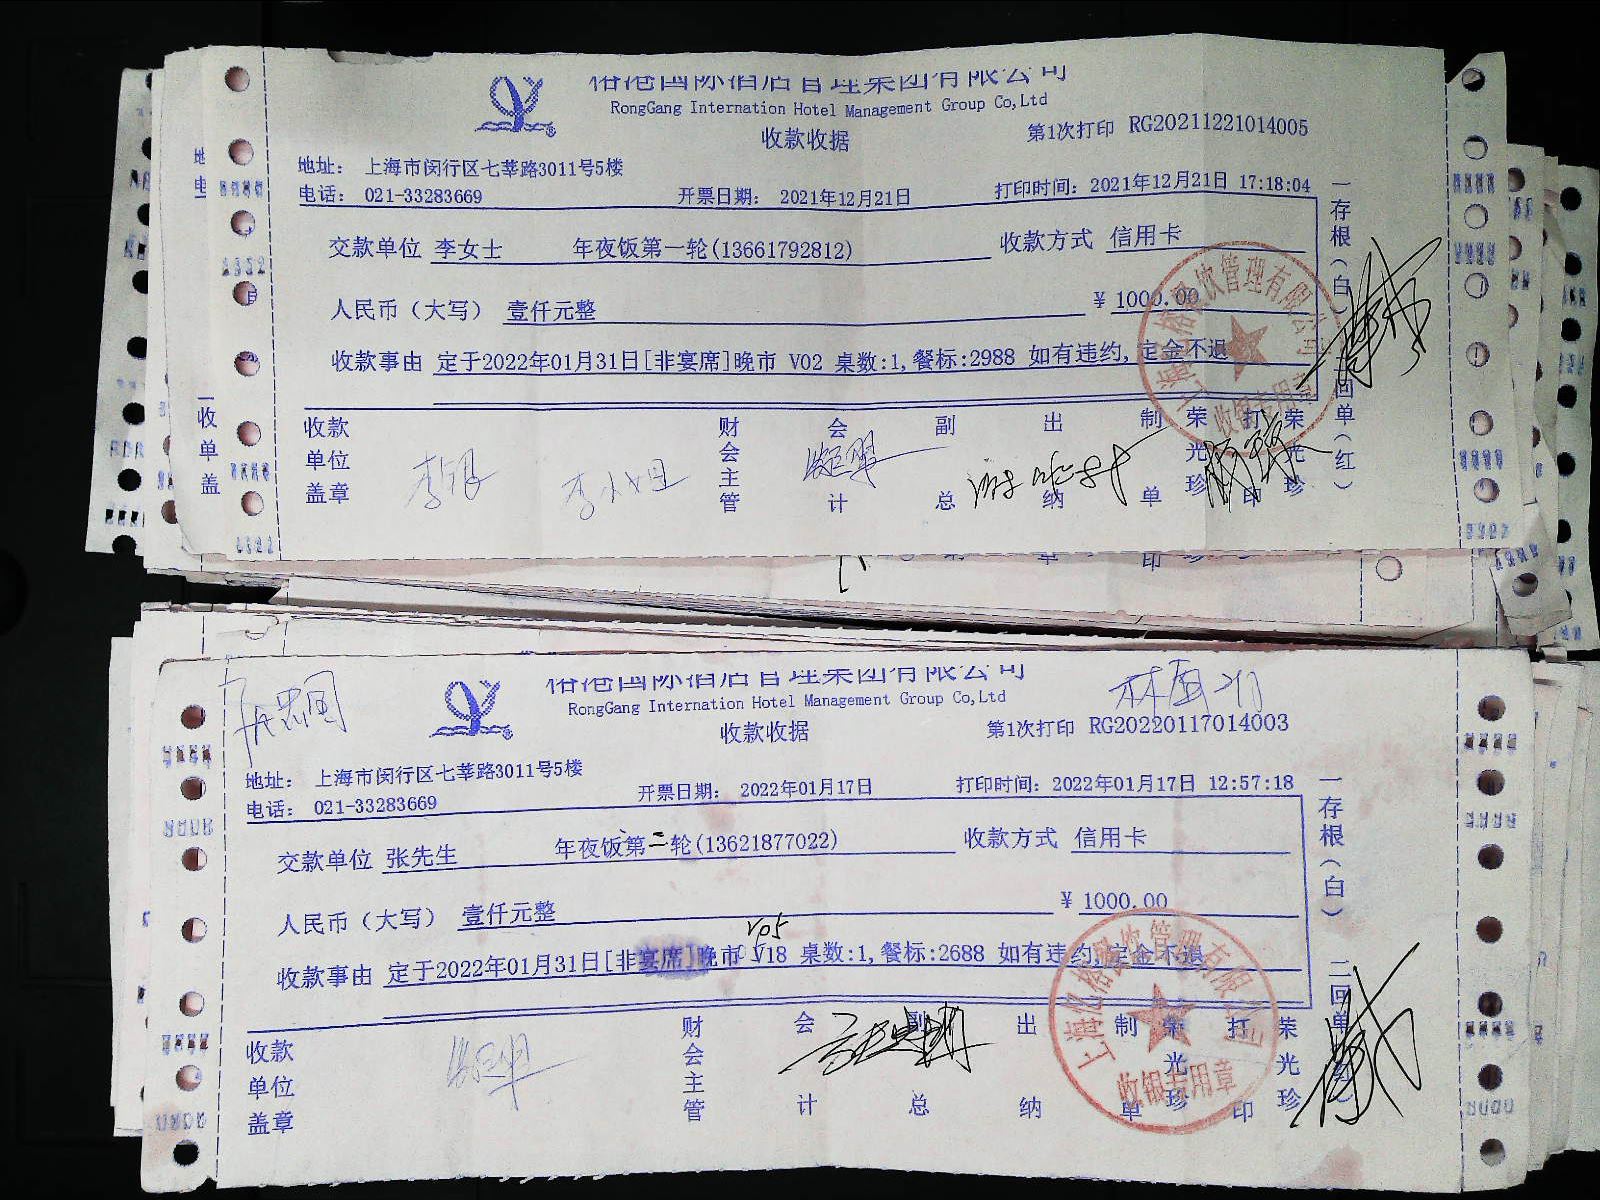 裕港国际酒店管理集团有限公司
RongGang Internation Hotel Management Group Co,Ltd
收款收据
第1次打印 RG20211221014005
地址： 上海市闵行区七莘路3011号5楼
电话： 021-33283669
开票日期： 2021年12月21日
打印时间：2021年12月21日 17:18:04
交款单位 李女士 年夜饭第一轮(13661792812)
收款方式 信用卡
人民币（大写） 壹仟元整
￥ 1000.00
收款事由 定于2022年01月31日[非宴席]晚市 V02 桌数:1,餐标:2988 如有违约,定金不退
收款单位盖章
财会主管
会计
副总
出纳
制单
荣光珍
打印
荣光珍
一存根（白）
二回单（红）
收银专用章
李小姐
收单盖
裕港国际酒店管理集团有限公司
RongGang Internation Hotel Management Group Co,Ltd
收款收据
第1次打印 RG20220117014003
地址： 上海市闵行区七莘路3011号5楼
电话： 021-33283669
开票日期： 2022年01月17日
打印时间：2022年01月17日 12:57:18
交款单位 张先生 年夜饭第二轮(13621877022)
收款方式 信用卡
人民币（大写） 壹仟元整
￥ 1000.00
VP5
收款事由 定于2022年01月31日[非宴席]晚市 V18 桌数:1,餐标:2688 如有违约,定金不退
收款单位盖章
财会主管
会计
副总
出纳
制单
荣光珍
打印
荣光珍
一存根（白）
二回单（红）
上海亿裕餐饮管理有限公司
收银专用章